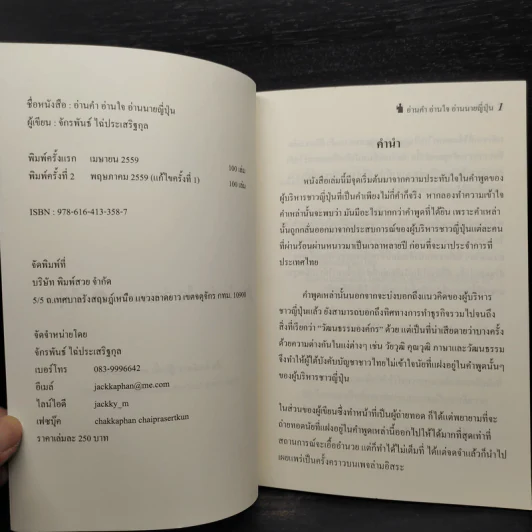 ชื่อหนังสือ : อ่านคำ อ่านใจ อ่านนายญี่ปุ่น
ผู้เขียน : จักรพันธ์ ไฉ่ประเสริฐกุล
พิมพ์ครั้งแรก เมษายน 2559 100 เล่ม
พิมพ์ครั้งที่ 2 พฤษภาคม 2559 (แก้ไขครั้งที่ 1) 100 เล่ม
ISBN : 978-616-413-358-7
จัดพิมพ์ที่
บริษัท พิมพ์สวย จำกัด
5/5 ถ.เทศบาลรังสฤษฎ์เหนือ แขวงลาดยาว เขตจตุจักร กทม. 10900
จัดจำหน่ายโดย
จักรพันธ์ ไฉ่ประเสริฐกุล
เบอร์โทร 083-9996642
อีเมล์ jackkaphan@me.com
ไลน์ไอดี jackky_m
เฟซบุ๊ค chakkaphan chaiprasertkun
ราคาเล่มละ 250 บาท
อ่านคำ อ่านใจ อ่านนายญี่ปุ่น 1
คำนำ
หนังสือเล่มนี้มีจุดเริ่มต้นมาจากความประทับใจในคำพูดของ
ผู้บริหารชาวญี่ปุ่นที่เป็นคำเพียงไม่กี่คำก็จริง หากลองทำความเข้าใจ
คำเหล่านั้นจะพบว่า มันมีอะไรมากกว่าคำพูดที่ได้ยิน เพราะคำเหล่า
นั้นถูกกลั่นออกมาจากประสบการณ์ของผู้บริหารชาวญี่ปุ่นแต่ละคน
ที่ผ่านร้อนผ่านหนาวมาเป็นเวลาหลายปี ก่อนที่จะมาประจำการที่
ประเทศไทย
คำพูดเหล่านั้นนอกจากจะบ่งบอกถึงแนวคิดของผู้บริหาร
ชาวญี่ปุ่นแล้ว ยังสามารถบอกถึงทิศทางการทำธุรกิจรวมไปจนถึง
สิ่งที่เรียกว่า "วัฒนธรรมองค์กร" ด้วย แต่เป็นที่น่าเสียดายว่าบางครั้ง
ด้วยความต่างกันในแง่ต่างๆ เช่น วัยวุฒิ คุณวุฒิ ภาษาและวัฒนธรรม
จึงทำให้ผู้ใต้บังคับบัญชาชาวไทยไม่เข้าใจนัยที่แฝงอยู่ในคำพูดนั้นๆ
ของผู้บริหารชาวญี่ปุ่น
ในส่วนของผู้เขียนซึ่งทำหน้าที่เป็นผู้ถ่ายทอด ก็ได้แต่พยายามที่จะ
ถ่ายทอดนัยที่แฝงอยู่ในคำพูดเหล่านี้ออกไปให้ได้มากที่สุดเท่าที่
สถานการณ์จะเอื้ออำนวย แต่ก็ทำได้ไม่เต็มที่ ได้แต่จดจำแล้วก็นำไป
เผยแพร่เป็นครั้งคราวบนเพจล่ามอิสระ